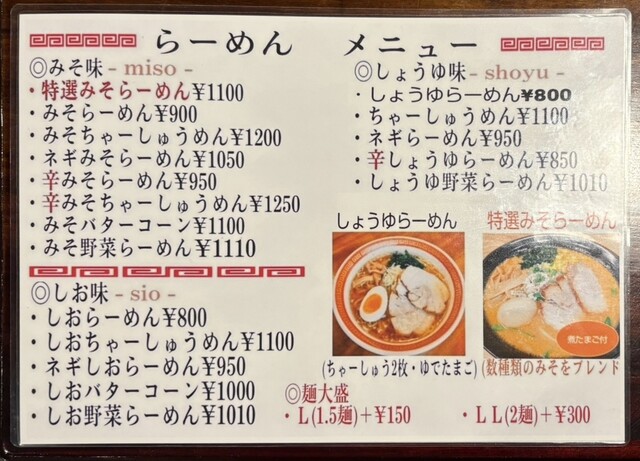 らーめん メニュー
◎みそ味 - miso -
・特選みそらーめん¥1100
・みそらーめん¥900
・みそちゃーしゅうめん¥1200
・ネギみそらーめん¥1050
・辛みそらーめん¥950
・辛みそちゃーしゅうめん¥1250
・みそバターコーン¥1100
・みそ野菜らーめん¥1110
◎しお味 - sio -
・しおらーめん¥800
・しおちゃーしゅうめん¥1100
・ネギしおらーめん¥950
・しおバターコーン¥1000
・しお野菜らーめん¥1010
◎しょうゆ味 - shoyu -
・しょうゆらーめん¥800
・ちゃーしゅうめん¥1100
・ネギらーめん¥950
・辛しょうゆらーめん¥850
・しょうゆ野菜らーめん¥1010
しょうゆらーめん
(ちゃーしゅう2枚・ゆでたまご)
特選みそらーめん
煮たまご付
(数種類のみそをブレンド
◎麺大盛
・L(1.5麺)+¥150 ・LL(2麺)+¥300